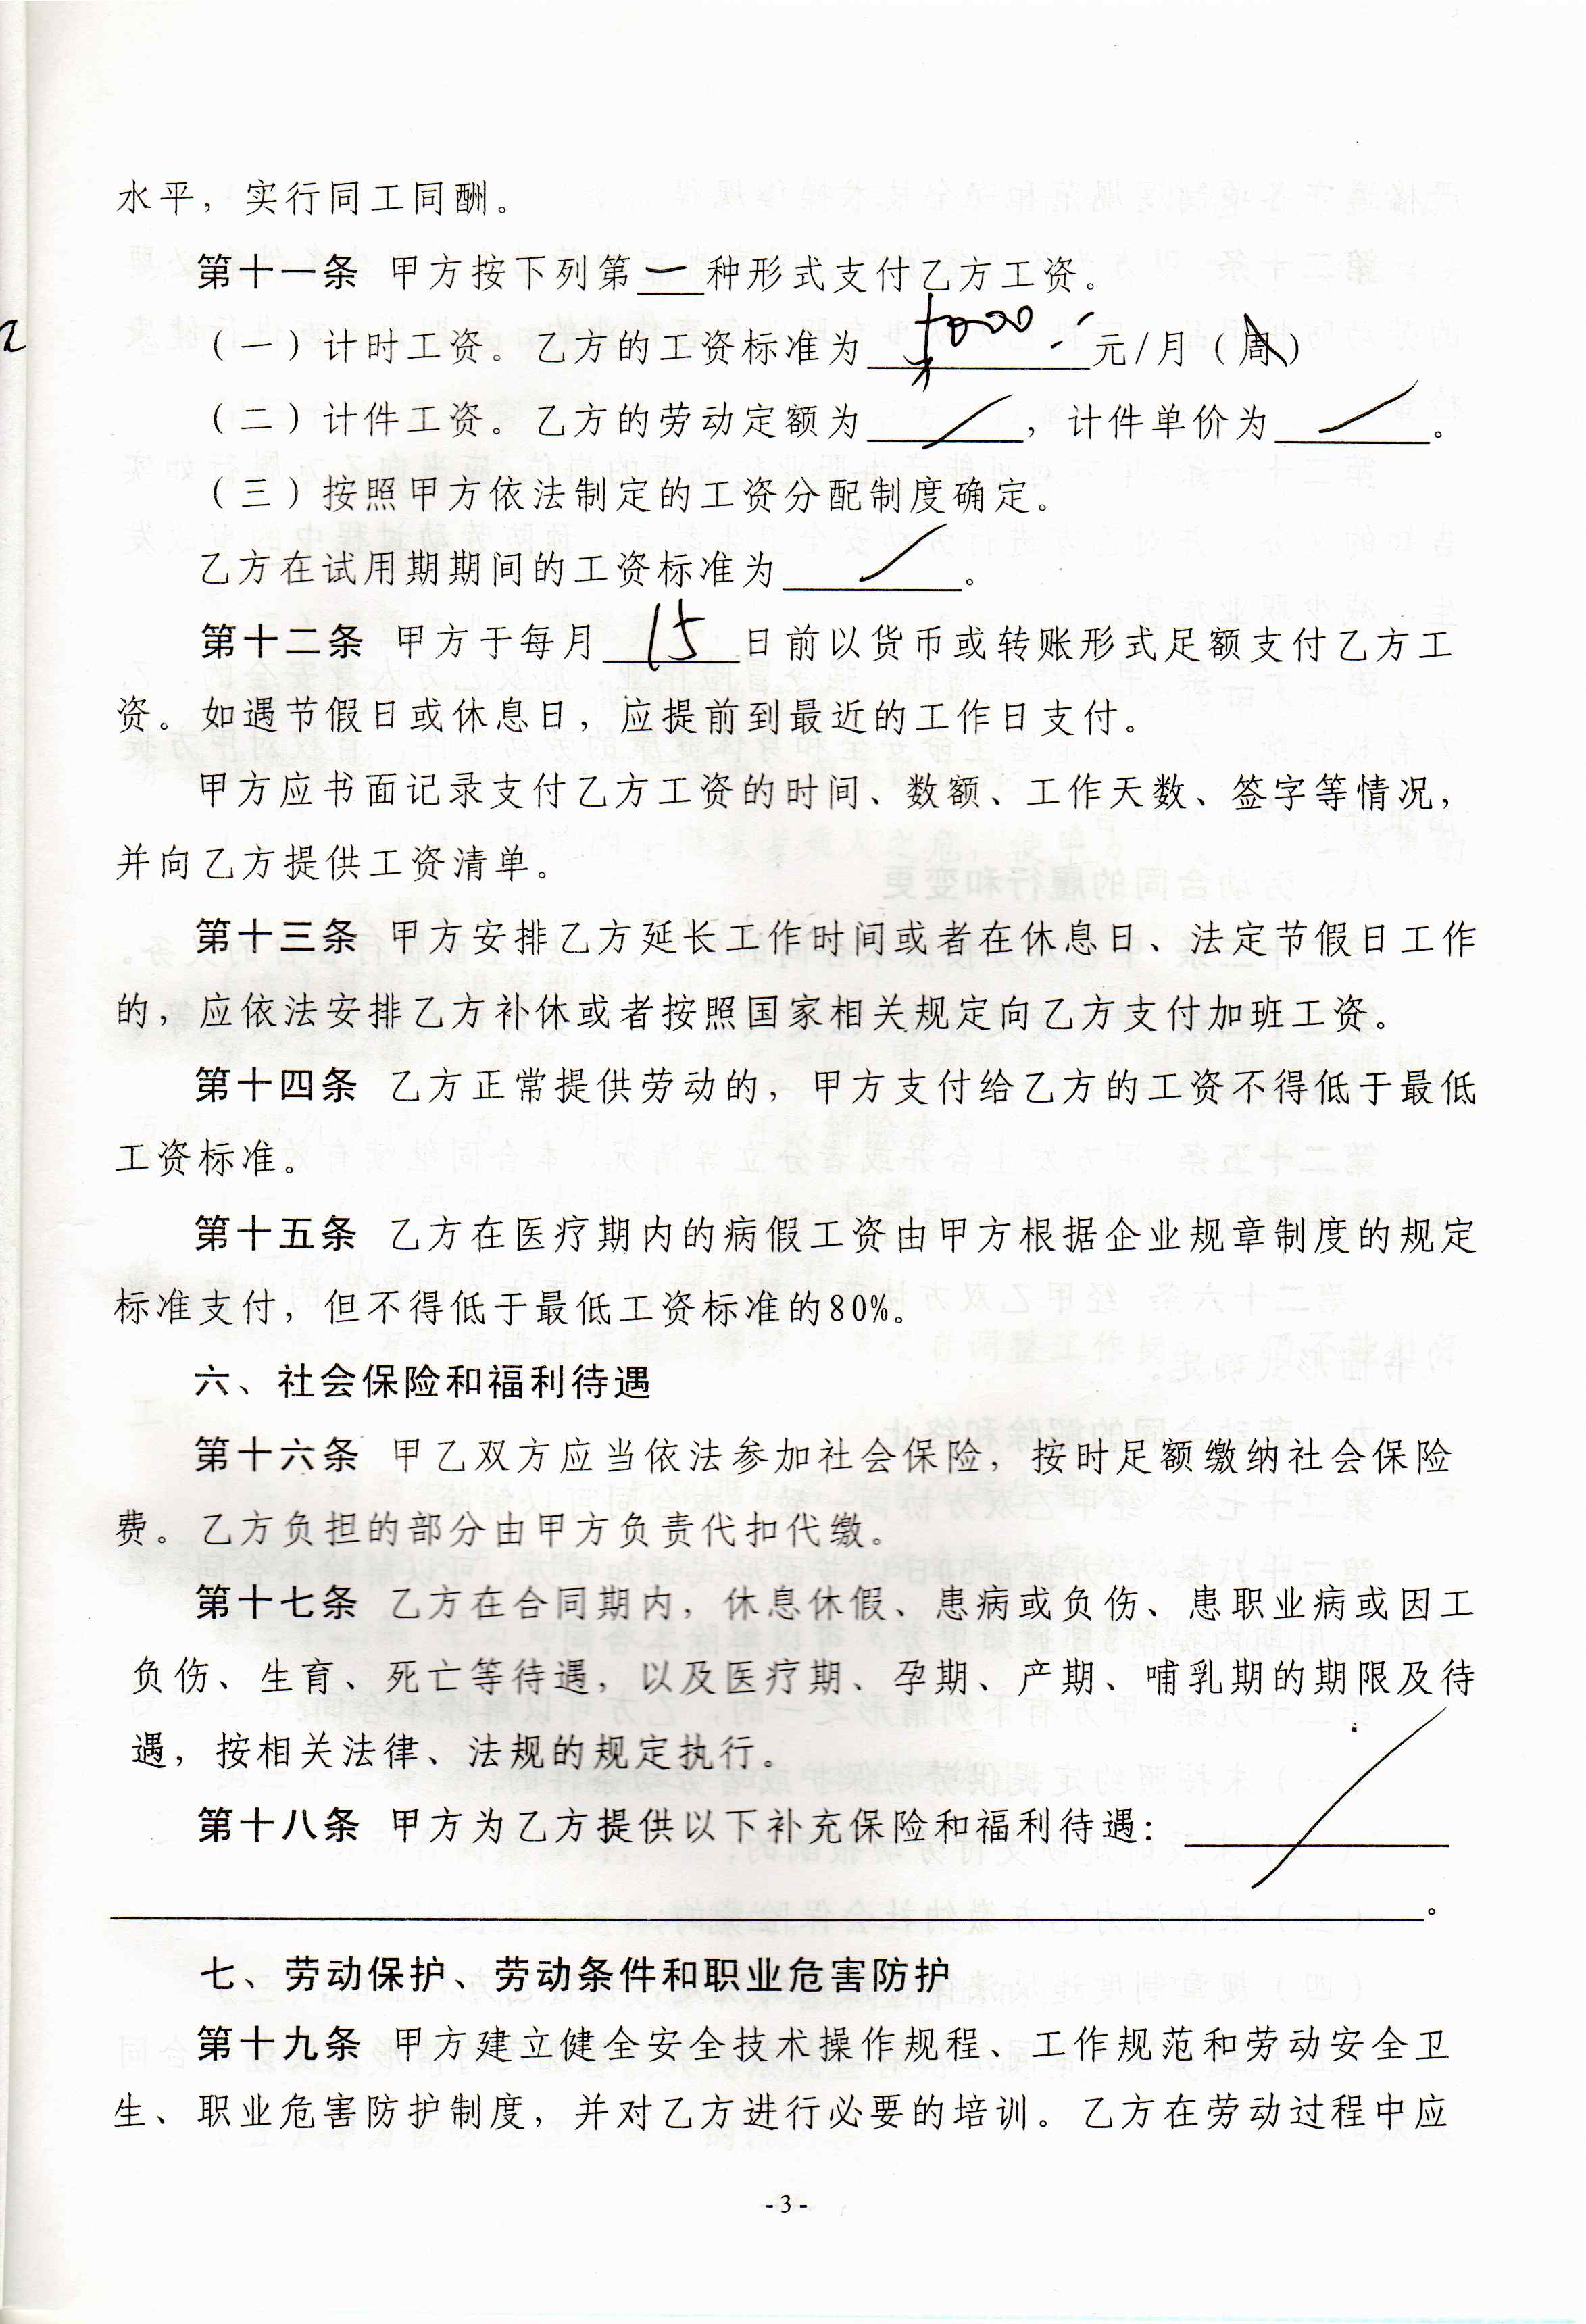 水平，实行同工同酬。
第十一条 甲方按下列第一种形式支付乙方工资。
（一）计时工资。乙方的工资标准为 元/月（周）
（二）计件工资。乙方的劳动定额为 ／ ，计件单价为 ／ 。
（三）按照甲方依法制定的工资分配制度确定。
乙方在试用期期间的工资标准为 ／ 。
第十二条 甲方于每月 15 日前以货币或转账形式足额支付乙方工
资。如遇节假日或休息日，应提前到最近的工作日支付。
甲方应书面记录支付乙方工资的时间、数额、工作天数、签字等情况，
并向乙方提供工资清单。
第十三条 甲方安排乙方延长工作时间或者在休息日、法定节假日工作
的，应依法安排乙方补休或者按照国家相关规定向乙方支付加班工资。
第十四条 乙方正常提供劳动的，甲方支付给乙方的工资不得低于最低
工资标准。
第十五条 乙方在医疗期内的病假工资由甲方根据企业规章制度的规定
标准支付，但不得低于最低工资标准的80%。
六、社会保险和福利待遇
第十六条 甲乙双方应当依法参加社会保险，按时足额缴纳社会保险
费。乙方负担的部分由甲方负责代扣代缴。
第十七条 乙方在合同期内，休息休假、患病或负伤、患职业病或因工
负伤、生育、死亡等待遇，以及医疗期、孕期、产期、哺乳期的期限及待
遇，按相关法律、法规的规定执行。
第十八条 甲方为乙方提供以下补充保险和福利待遇： ／
。
七、劳动保护、劳动条件和职业危害防护
第十九条 甲方建立健全安全技术操作规程、工作规范和劳动安全卫
生、职业危害防护制度，并对乙方进行必要的培训。乙方在劳动过程中应
- 3 -